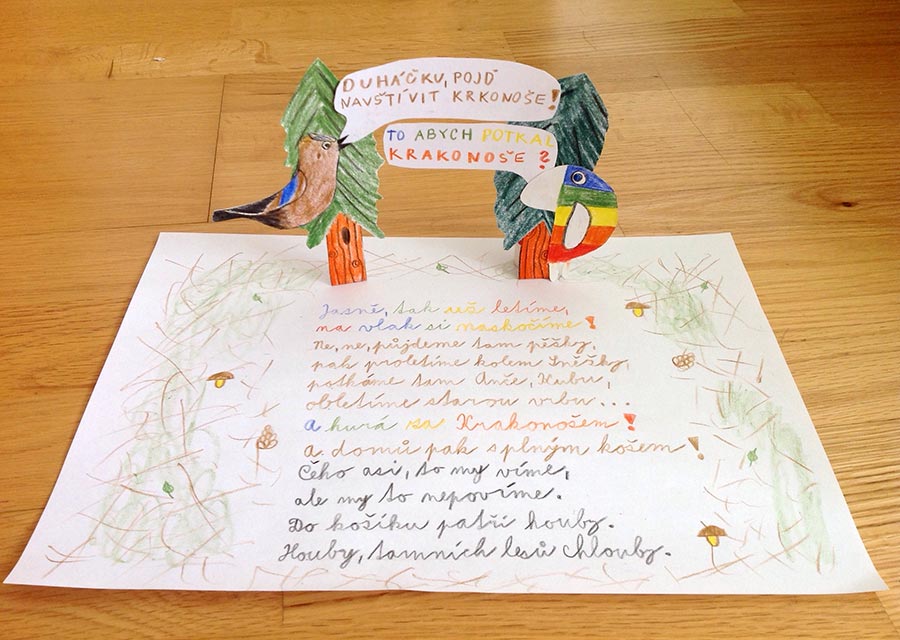 DUHÁČKU, POJĎ
NAVŠTÍVIT KRKONOŠE!
TO ABYCH POTKAL
KRAKONOŠE?
Jasně, tak už letíme,
na vlak si naskočíme!
Ne, ne, půjdeme tam pěšky,
pak proletíme kolem Sněžky,
potkáme tam Anče, Kubu,
obletíme starou vrbu...
A hurá za Krakonošem!
a domů pak s plným košem!
Čeho asi, to my víme,
ale my to nepovíme.
Do košíku patří houby.
Houby, tamních lesů chlouby.